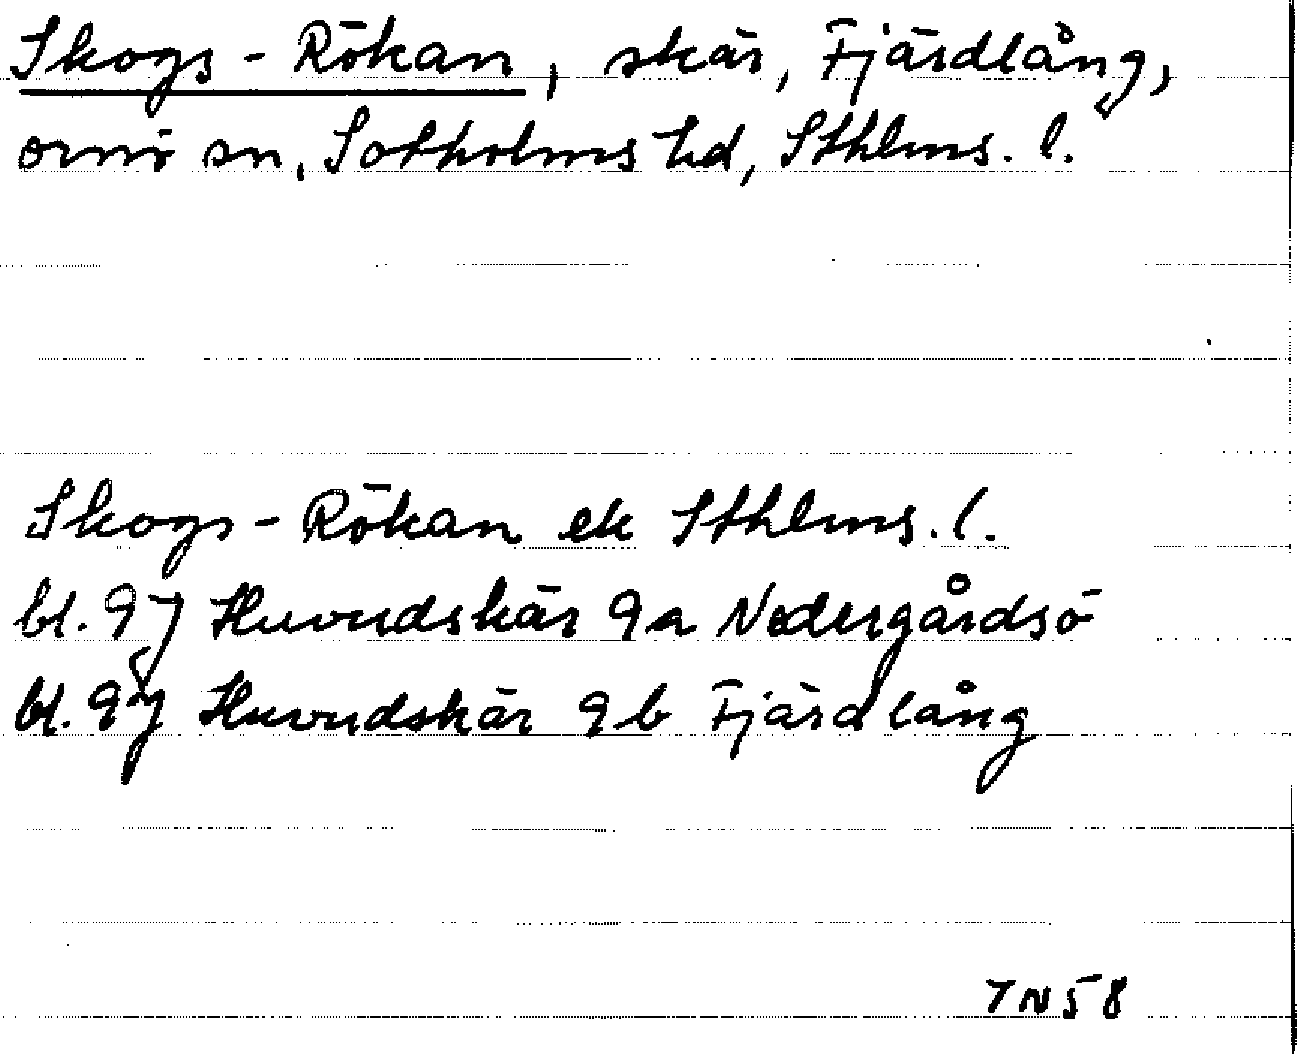 Skogs-Rökan, skär, Fjärdlång,
Ornö sn, Sotholms hd, Sthlms. l.
Skogs-Rökan ek Sthlms. l.
bl. 9J Huvudskär 9a Nedergårdsö
bl. 9J Huvudskär 9b Fjärdlång
TN58